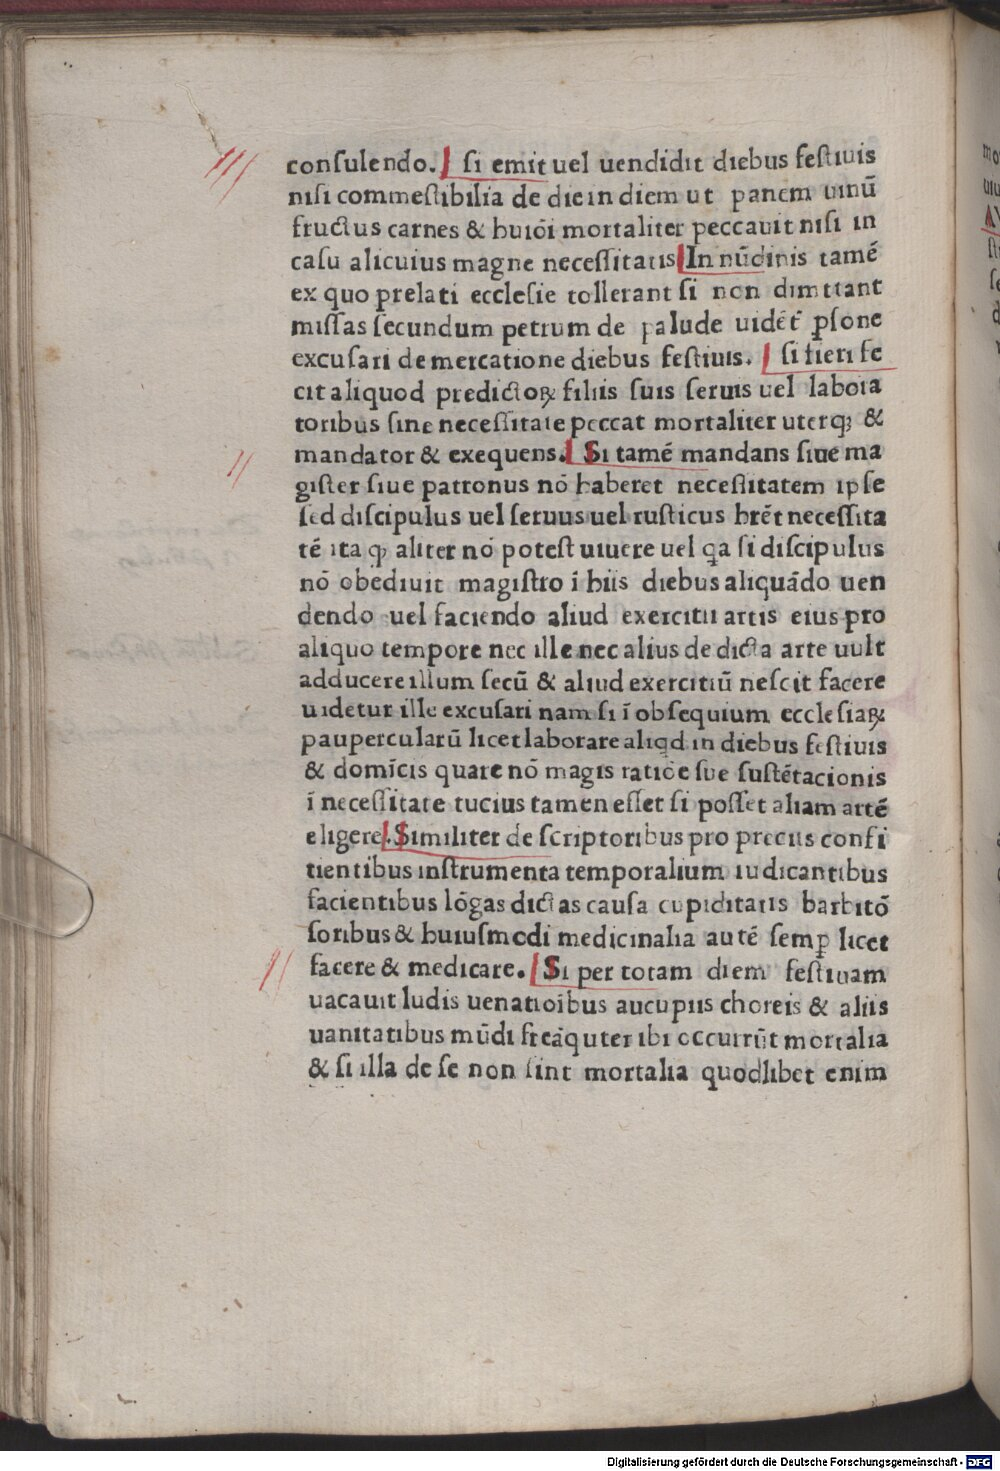 consulendo. si emit uel uendidit diebus festiuis
nisi commestibilia de die in diem ut panem uinū
fructus carnes & huiōi mortaliter peccauit nisi in
casu alicuius magne necessitatis In nūdinis tamē
ex quo prelati ecclesie tollerant si non dimttant
missas secundum petrum de palude uidēt̄ ꝑsone
excusari de mercatione diebus festiuis. si fieri fe
cit aliquod predictoꝝ filiis suis seruis uel labora
toribus sine necessitate peccat mortaliter uterqꝫ &
mandator & exequens. Si tamē mandans siue ma
gister siue patronus nō haberet necessitatem ipse
sed discipulus uel seruus uel rusticus hrēt necessita
tē ita ꝙ aliter nō potest uiuere uel q̄a si discipulus
nō obediuit magistro ī hiis diebus aliquādo uen
dendo uel faciendo aliud exercitii artis eius pro
aliquo tempore nec ille nec alius de dicta arte uult
adducere illum secū & aliud exercitiū nescit facere
uidetur ille excusari nam si ī obsequium ecclesiaꝝ
paupercularū licet laborare aliqd in diebus festiuis
& domīcis quare nō magis ratiōe sue sustētacionis
ī necessitate tucius tamen esset si posset aliam artē
eligere. Similiter de scriptoribus pro preciis confi
tientibus instrumenta temporalium iudicantibus
facientibus lōgas dictas causa cupiditatis barbitō
soribus & huiusmodi medicinalia autē semꝑ licet
facere & medicare. Si per totam diem festiuam
uacauit ludis uenatioībus aucupiis choreis & aliis
uanitatibus mūdi freāquter ibi occurrūt mortalia
& si illa de se non sint mortalia quodlibet enim
Digitalisierung gefördert durch die Deutsche Forschungsgemeinschaft - DFG